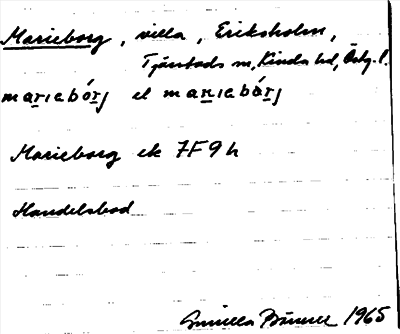 Marieborg, villa, Eriksholm,
Tjärstads sn, Kinda hd, Östg. l.
marɪebórj el marɪebárj
Marieborg ek 7F9h
Handelsbod
Gunilla 1965